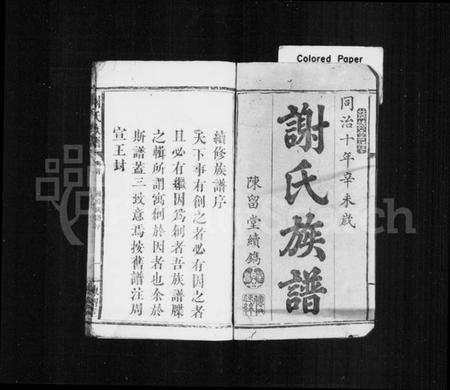 Colored Paper
同治十年辛未歲
謝氏族譜
陳留堂續鐫
續修族譜序
天下事有創之者必有因之者
且必有繼因爲創者吾族譜牒
之輯所謂寓創於因者也余於
斯譜蓋三致意焉按舊譜注周
宣王封